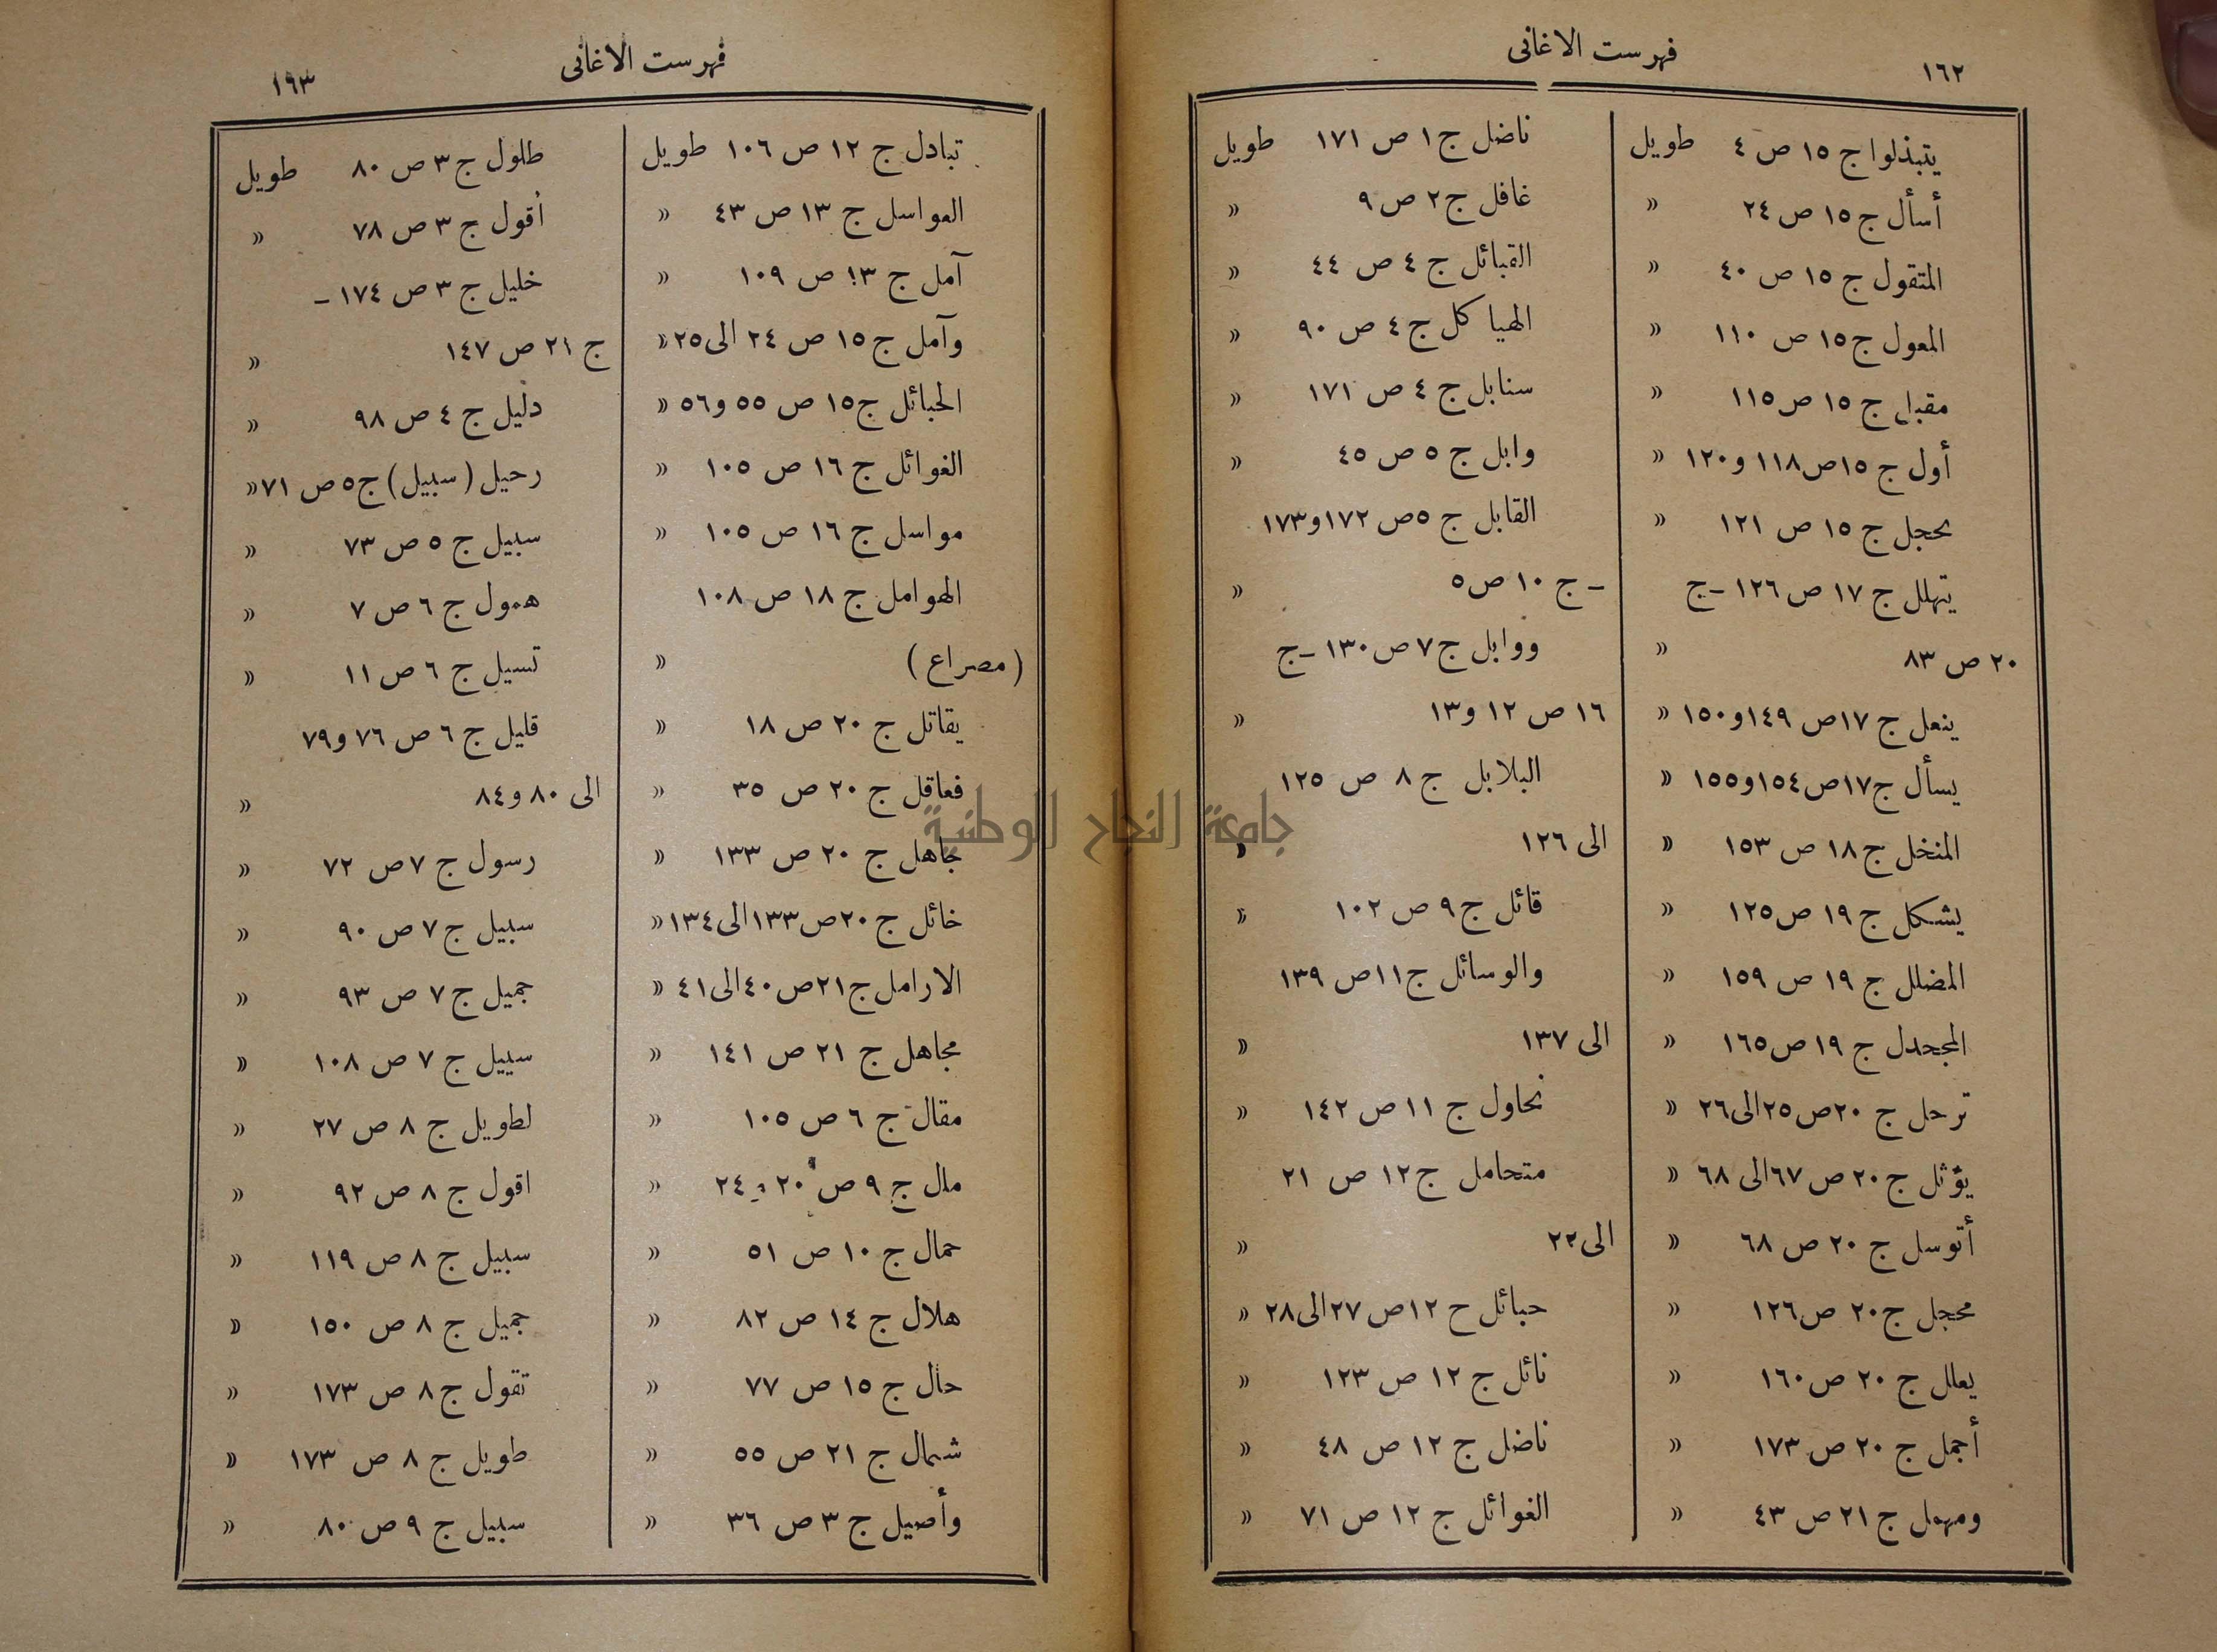 ١٦٢
فهرست الاغانى
يتبذلوا ج ١٥ ص ٤ طويل
أسأل ج ١٥ ص ٢٤ «
المتقول ج ١٥ ص ٤٠ «
المعول ج ١٥ ص ١١٠ «
مقبل ج ١٥ ص ١١٥ «
أول ج ١٥ ص ١١٨ و ١٢٠ «
يحجل ج ١٥ ص ١٢١ «
يتهلل ج ١٧ ص ١٢٦ – ج
٢٠ ص ٨٣ «
ينعل ج ١٧ ص ١٤٩ و ١٥٠ «
يسأل ج ١٧ ص ١٥٤ و ١٥٥ «
المنخل ج ١٨ ص ١٥٣ «
يشكل ج ١٩ ص ١٢٥ «
المضلل ج ١٩ ص ١٥٩ «
المجحدل ج ١٩ ص ١٦٥ «
ترحل ج ٢٠ ص ٢٥ الى ٢٦ «
يؤثل ج ٢٠ ص ٦٧ الى ٦٨ «
أتوسل ج ٢٠ ص ٦٨ «
محجل ج ٢٠ ص ١٢٦ «
يعلل ج ٢٠ ص ١٦٠ «
أجمل ج ٢٠ ص ١٧٣ «
ومهمل ج ٢١ ص ٤٣ «
ناضل ج ١ ص ١٧١ طويل
غافل ج ٢ ص ٩ «
القبائل ج ٤ ص ٤٤ «
الهياكل ج ٤ ص ٩٠ «
سنابل ج ٤ ص ١٧١ «
وابل ج ٥ ص ٤٥ «
القابل ج ٥ ص ١٧٢ و ١٧٣
– ج ١٠ ص ٥ «
ووابل ج ٧ ص ١٣٠ – ج
١٦ ص ١٢ و ١٣ «
البلابل ج ٨ ص ١٢٥
الى ١٢٦ «
قائل ج ٩ ص ١٠٢ «
والوسائل ج ١١ ص ١٣٩
الى ١٣٧ «
نحاول ج ١١ ص ١٤٢ «
متحامل ج ١٢ ص ٢١
الى ٢٢ «
حبائل ح ١٢ ص ٢٧ الى ٢٨ «
نائل ج ١٢ ص ١٢٣ «
ناضل ج ١٢ ص ٤٨ «
الغوائل ج ١٢ ص ٧١ «
فهرست الاغانى
١٦٣
تبادل ج ١٢ ص ١٠٦ طويل
العواسل ج ١٣ ص ٤٣ «
آمل ج ١٣ ص ١٠٩ «
وآمل ج ١٥ ص ٢٤ الى ٢٥ «
الحبائل ج ١٥ ص ٥٥ و ٥٦ «
الغوائل ج ١٦ ص ١٠٥ «
مواسل ج ١٦ ص ١٠٥ «
الهوامل ج ١٨ ص ١٠٨
(مصراع) «
يقاتل ج ٢٠ ص ١٨ «
فعاقل ج ٢٠ ص ٣٥ «
جاهل ج ٢٠ ص ١٣٣ «
خائل ج ٢٠ ص ١٣٣ الى ١٣٤ «
الارامل ج ٢١ ص ٤٠ الى ٤١ «
مجاهل ج ٢١ ص ١٤١ «
مقال ج ٦ ص ١٠٥ «
مال ج ٩ ص ٢٠ و ٢٤ «
حمال ج ١٠ ص ٥١ «
هلال ج ١٤ ص ٨٢ «
حال ج ١٥ ص ٧٧ «
شمال ج ٢١ ص ٥٥ «
وأصيل ج ٣ ص ٣٦ «
طلول ج ٣ ص ٨٠ طويل
أقول ج ٣ ص ٧٨ «
خليل ج ٣ ص ١٧٤ –
ج ٢١ ص ١٤٧ «
دليل ج ٤ ص ٩٨ «
رحيل (سبيل) ج ٥ ص ٧١ «
سبيل ج ٥ ص ٧٣ «
همول ج ٦ ص ٧ «
تسيل ج ٦ ص ١١ «
قليل ج ٦ ص ٧٦ و ٧٩
الى ٨٠ و ٨٤ «
رسول ج ٧ ص ٧٢ «
سبيل ج ٧ ص ٩٠ «
جميل ج ٧ ص ٩٣ «
سبيل ج ٧ ص ١٠٨ «
لطويل ج ٨ ص ٢٧ «
اقول ج ٨ ص ٩٢ «
سبيل ج ٨ ص ١١٩ «
جميل ج ٨ ص ١٥٠ «
تقول ج ٨ ص ١٧٣ «
طويل ج ٨ ص ١٧٣ «
سبيل ج ٩ ص ٨٠ «
جامعة النجاح الوطنية